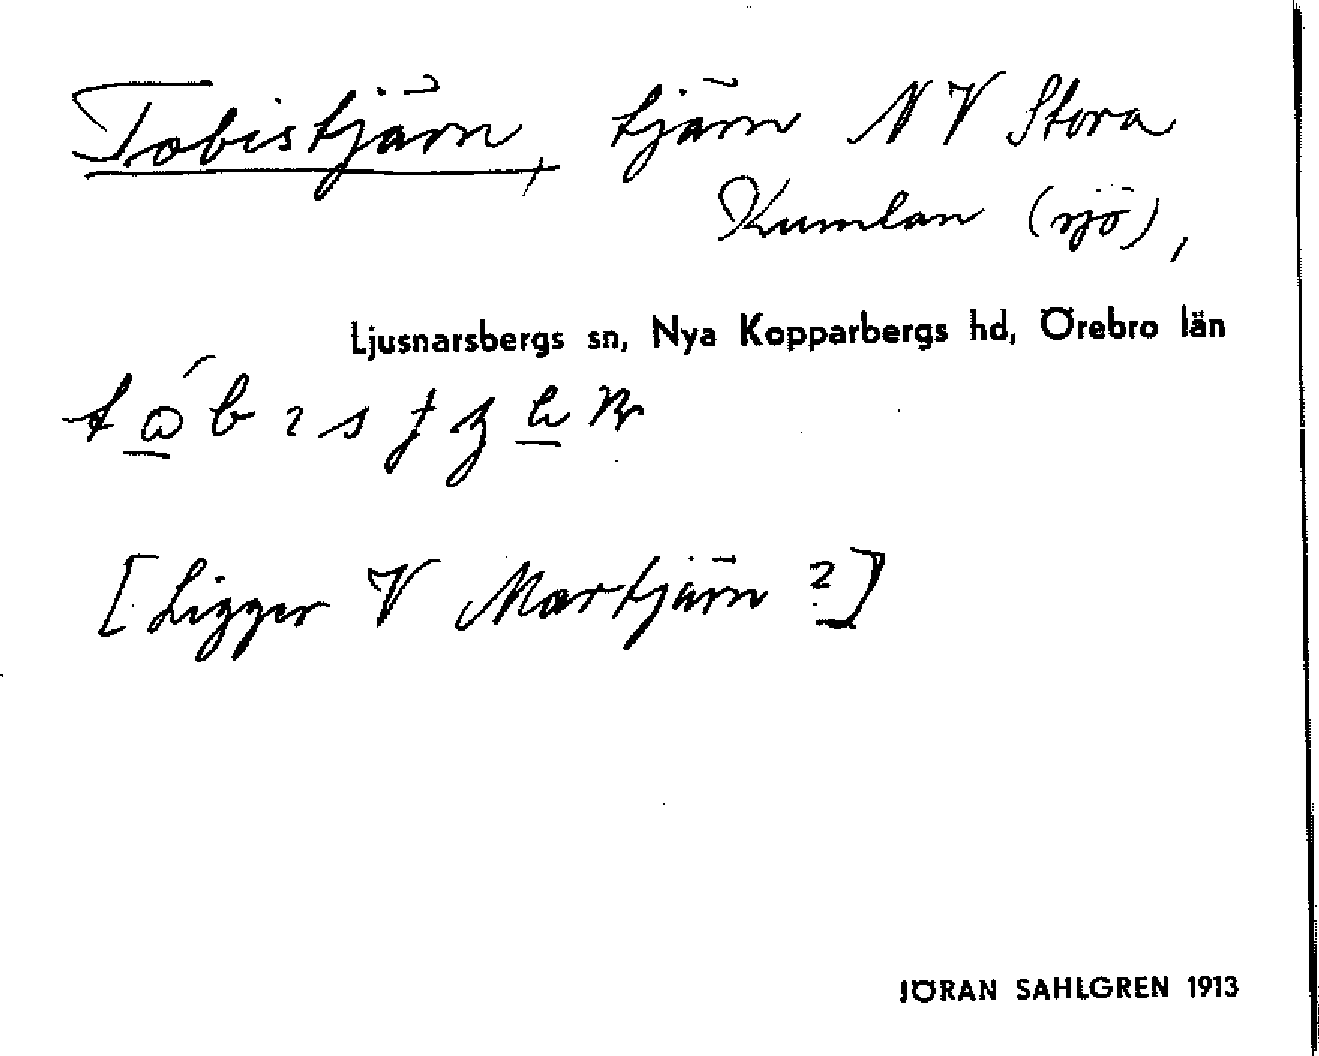 Tobistjärn, tjärn NV Stora
Kumlan (sjö),
Ljusnarsbergs sn, Nya Kopparbergs hd, Örebro län
[Ligger V Mortjärn ?]
JÖRAN SAHLGREN 1913